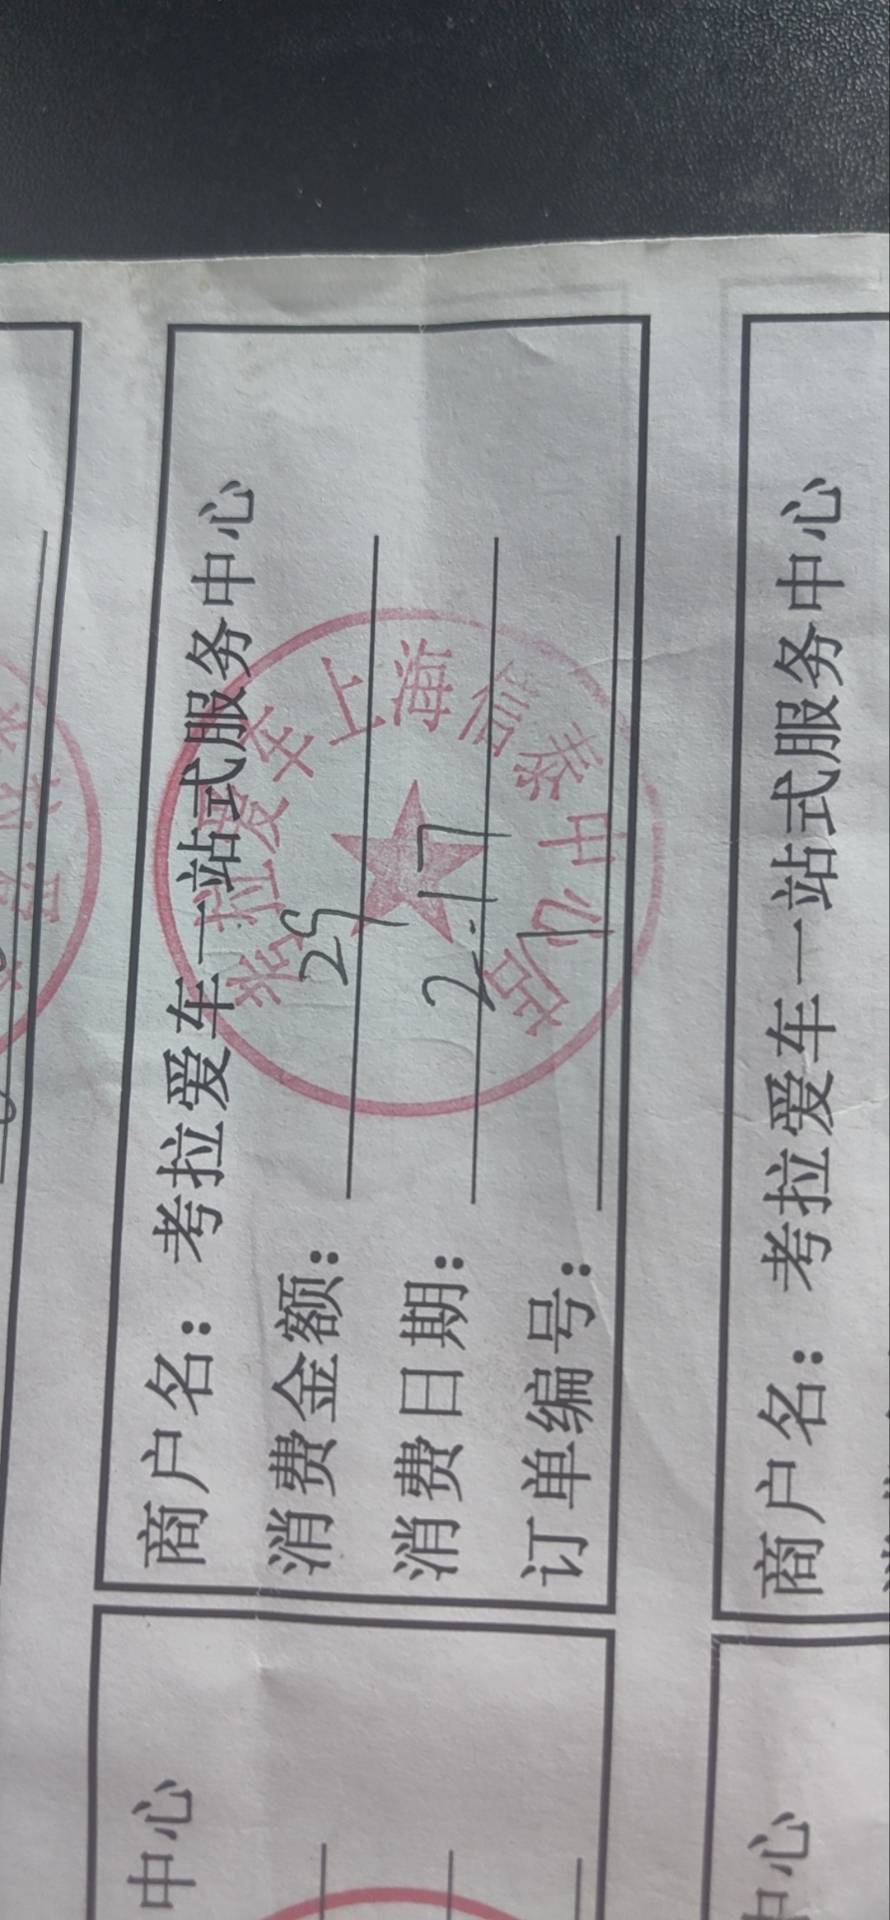 商户名：考拉爱车一站式服务中心
消费金额：29
消费日期：2.17
订单编号：1
考拉爱车上海信泰中心店
商户名：考拉爱车一站式服务中心
中心
中心